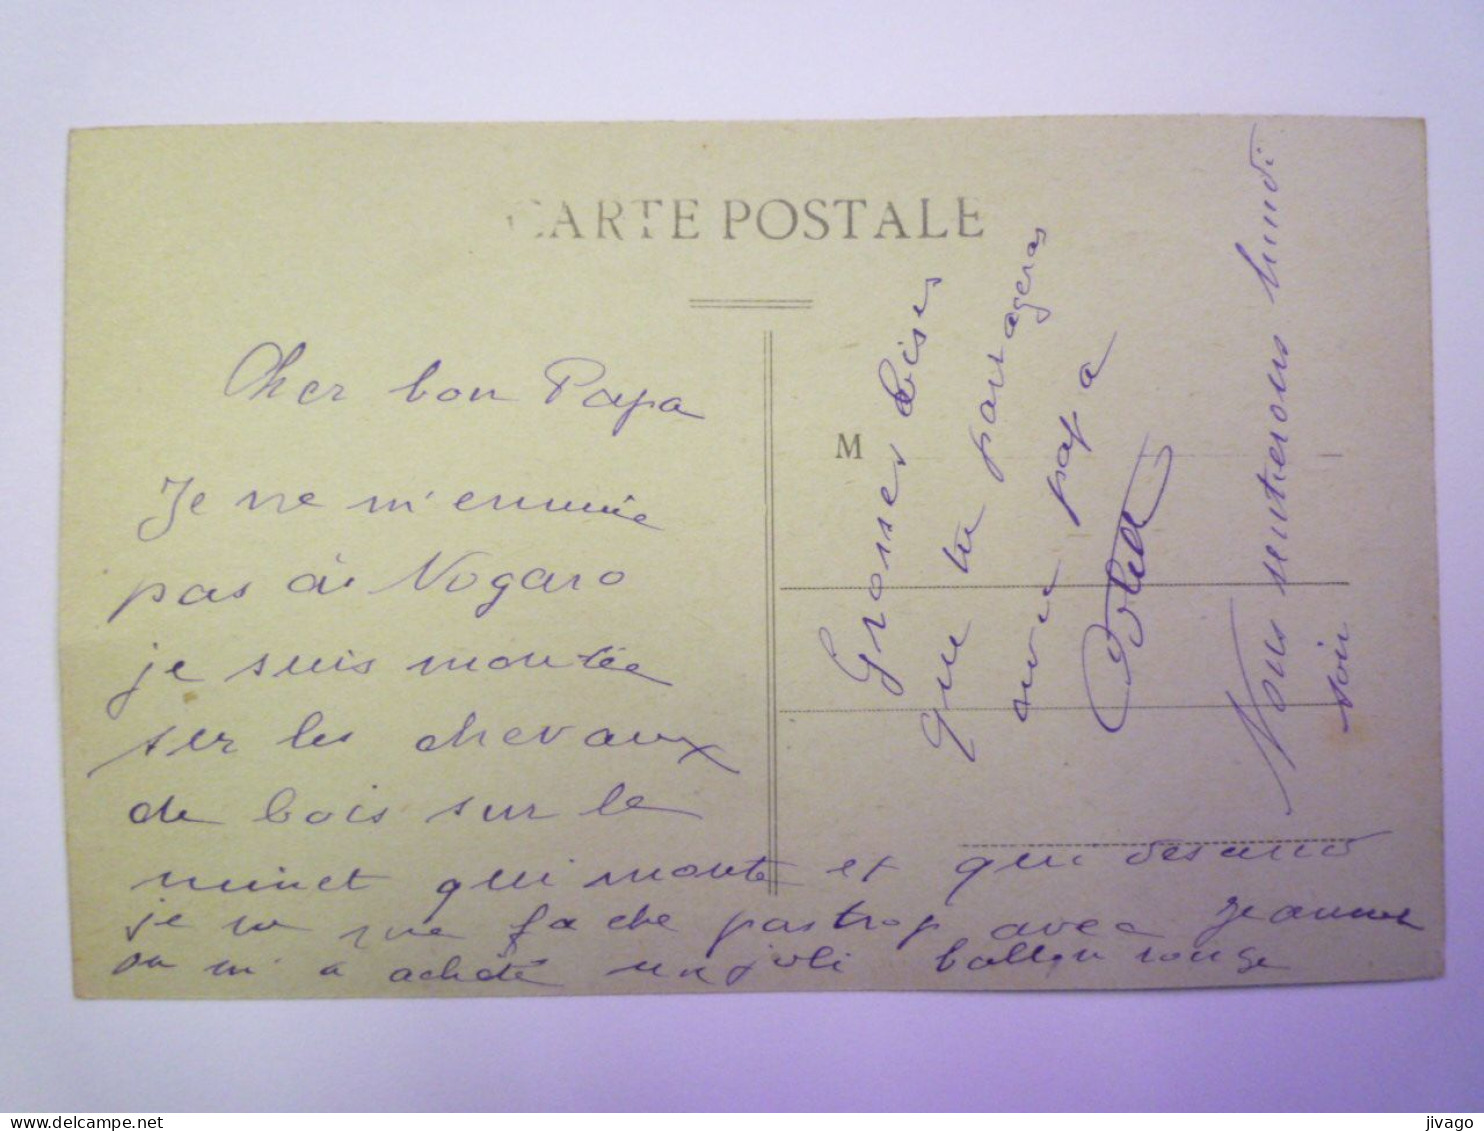 CARTE POSTALE
Cher bon Papa
Je ne m'ennuie
pas à Nogaro
je suis montée
ser les chevaux
de bois sur le
minet qui monte et qui desand
je ne me fache pas trop avec Jeannot
on m'a acheté un joli ballon rouge
M
Grosses bises
que tu partageras
avec papa
Nous rentrerons lundi
soir
jivago